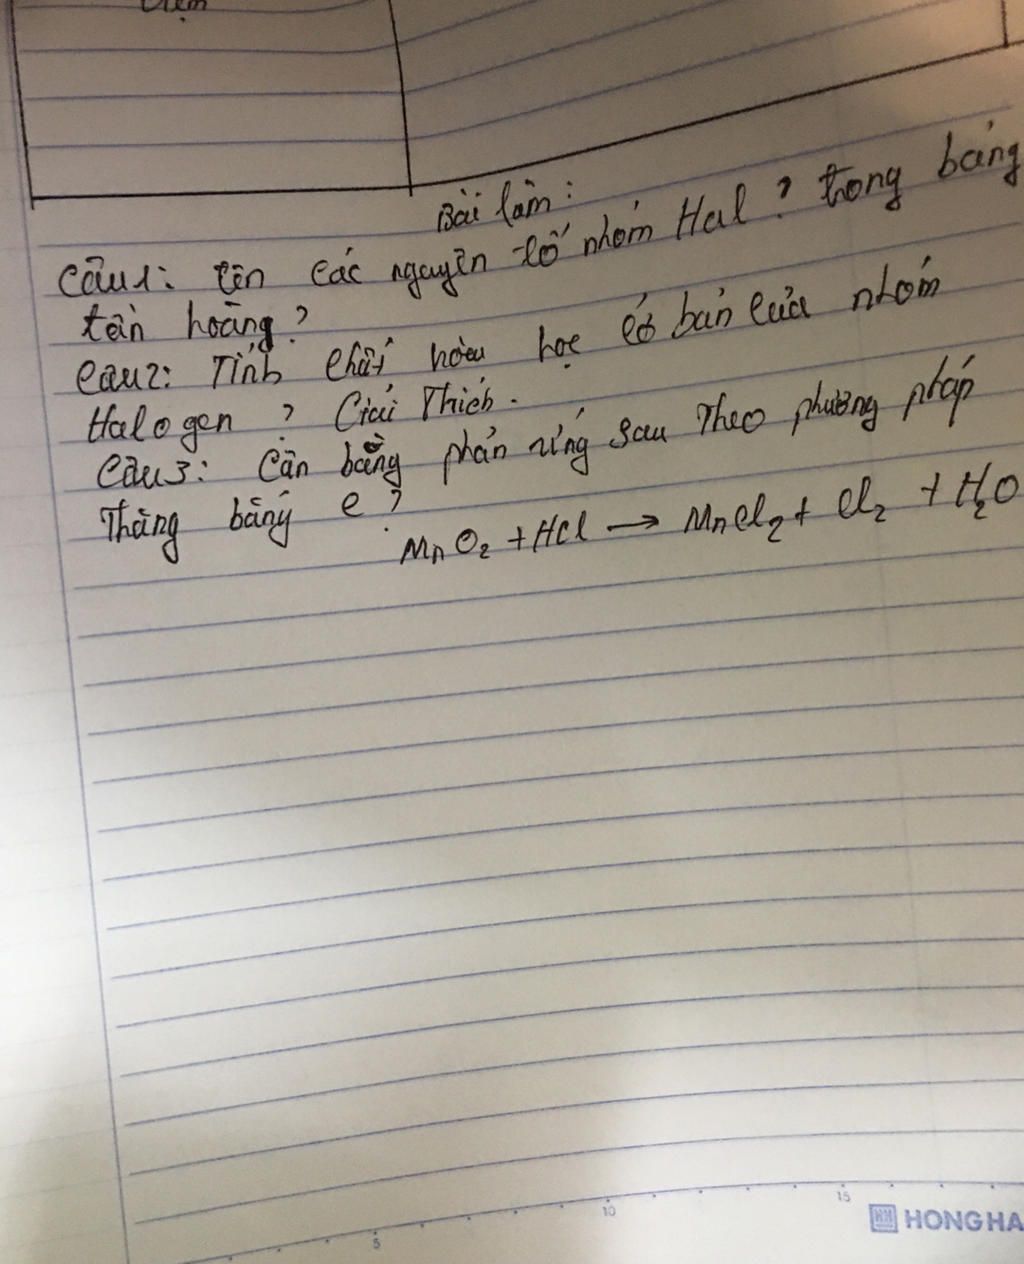 Điểm
Bài làm:
Câu1: tên các nguyên tố nhóm Hal? trong bảng
tuần hoàng?
Câu2: Tính chất hóa học cơ bản của nhóm
Halogen? Giải Thích.
Câu3: Cân bằng phản ứng sau Theo phương pháp
Thăng bằng e?
MnO₂ + HCl → MnCl₂ + Cl₂ + H₂O
5
10
15
HH HONG HA